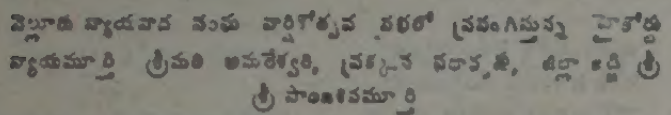 నెల్లూరు న్యాయవాద సంఘ వార్షికోత్సవ సభలో ప్రసంగిస్తున్న హైకోర్టు
న్యాయమూర్తి శ్రీమతి అమరేశ్వరి, ప్రక్కన సభాధ్యక్షు, జిల్లా జడ్జి శ్రీ
శ్రీ సాంబశివమూర్తి